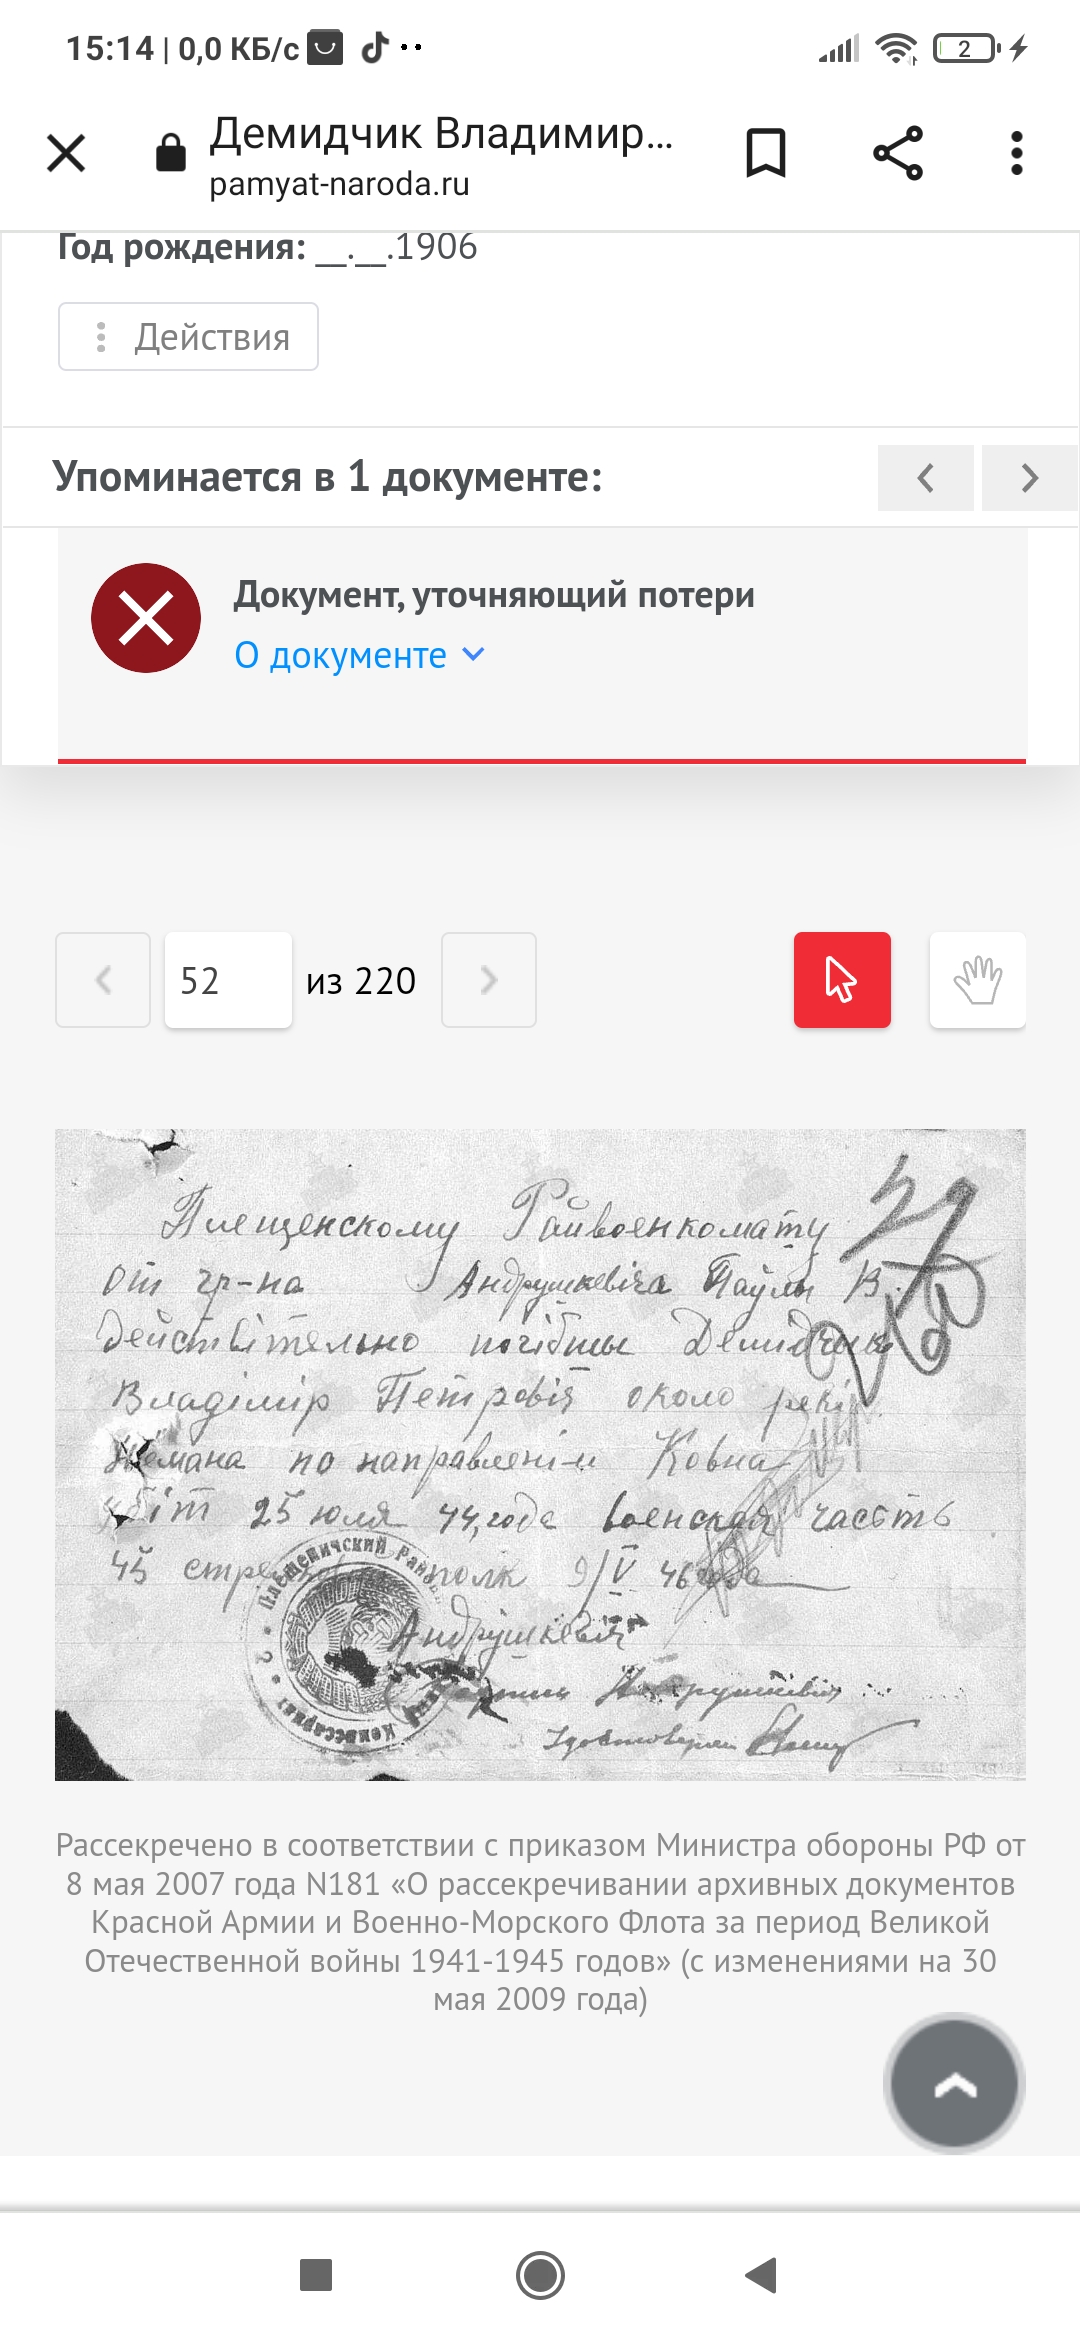 15:14 | 0,0 КБ/с
2
Демидчик Владимир...
pamyat-naroda.ru
Год рождения: __.__.1906
Действия
Упоминается в 1 документе:
Документ, уточняющий потери
О документе
52 из 220
Плещенскому Райвоенкомату
От гр-на Андрушкевiча Паўлы В.
Действiтельно погiбшы Демидчык
Владiмiр Петровiч около рекi
Немана по направленi-и Ковна
убiт 25 юля 44, года военская часть
45 полк 9/V 46 года
Андрушкевiч
Удостоверяю
Плещеничский Рай
Комиссариат
Рассекречено в соответствии с приказом Министра обороны РФ от
8 мая 2007 года N181 «О рассекречивании архивных документов
Красной Армии и Военно-Морского Флота за период Великой
Отечественной войны 1941-1945 годов» (с изменениями на 30
мая 2009 года)